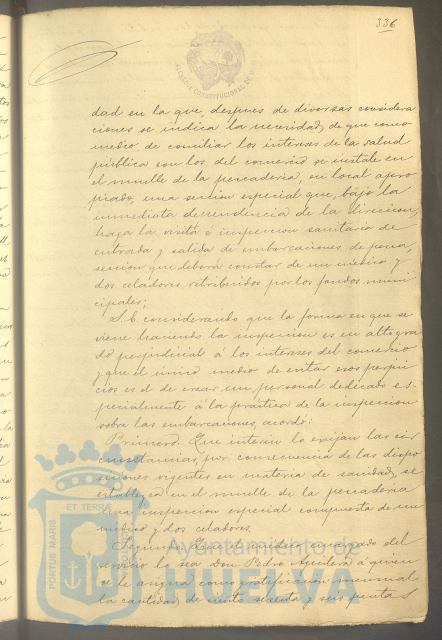 336
ALCALDIA CONSTITUCIONAL DE
dad en la que, despues de diversas considera
ciones se indica la necesidad, de que como
medio de conciliar los intereses de la salud
pública con los del comercio se instale en
el muelle de la pescadería, en local apro
piado, una seccion especial que, bajo la
inmediata dependencia de la direccion,
haga la visita é inspeccion sanitaria de
entrada y salida de embarcaciones de pesca,
seccion que deberá constar de un médico y
dos celadores retribuidos por los fondos muni
cipales;
S.E. considerando que la forma en que se
viene haciendo la inspeccion es en alto gra
do perjudicial á los intereses del comercio
y que el único medio de evitar esos perjui
cios es el de crear un personal dedicado es
pecialmente á la práctica de la inspeccion
sobre las embarcaciones, acordó:
Primero. Que interin lo exijan las cir
cunstancias, por consecuencia de las dispo
siciones vigentes en materia de sanidad, se
establezca en el muelle de la pescadería
una inspeccion especial compuesta de un
médico y dos celadores.
Segundo. Que el médico encargado del
servicio lo sea Don Pedro á quien
se le asigna como gratificacion mensual
la cantidad de ciento setenta y seis pesetas
PORTUS MARIS ET TERRAE
Ayuntamiento de
HUELVA